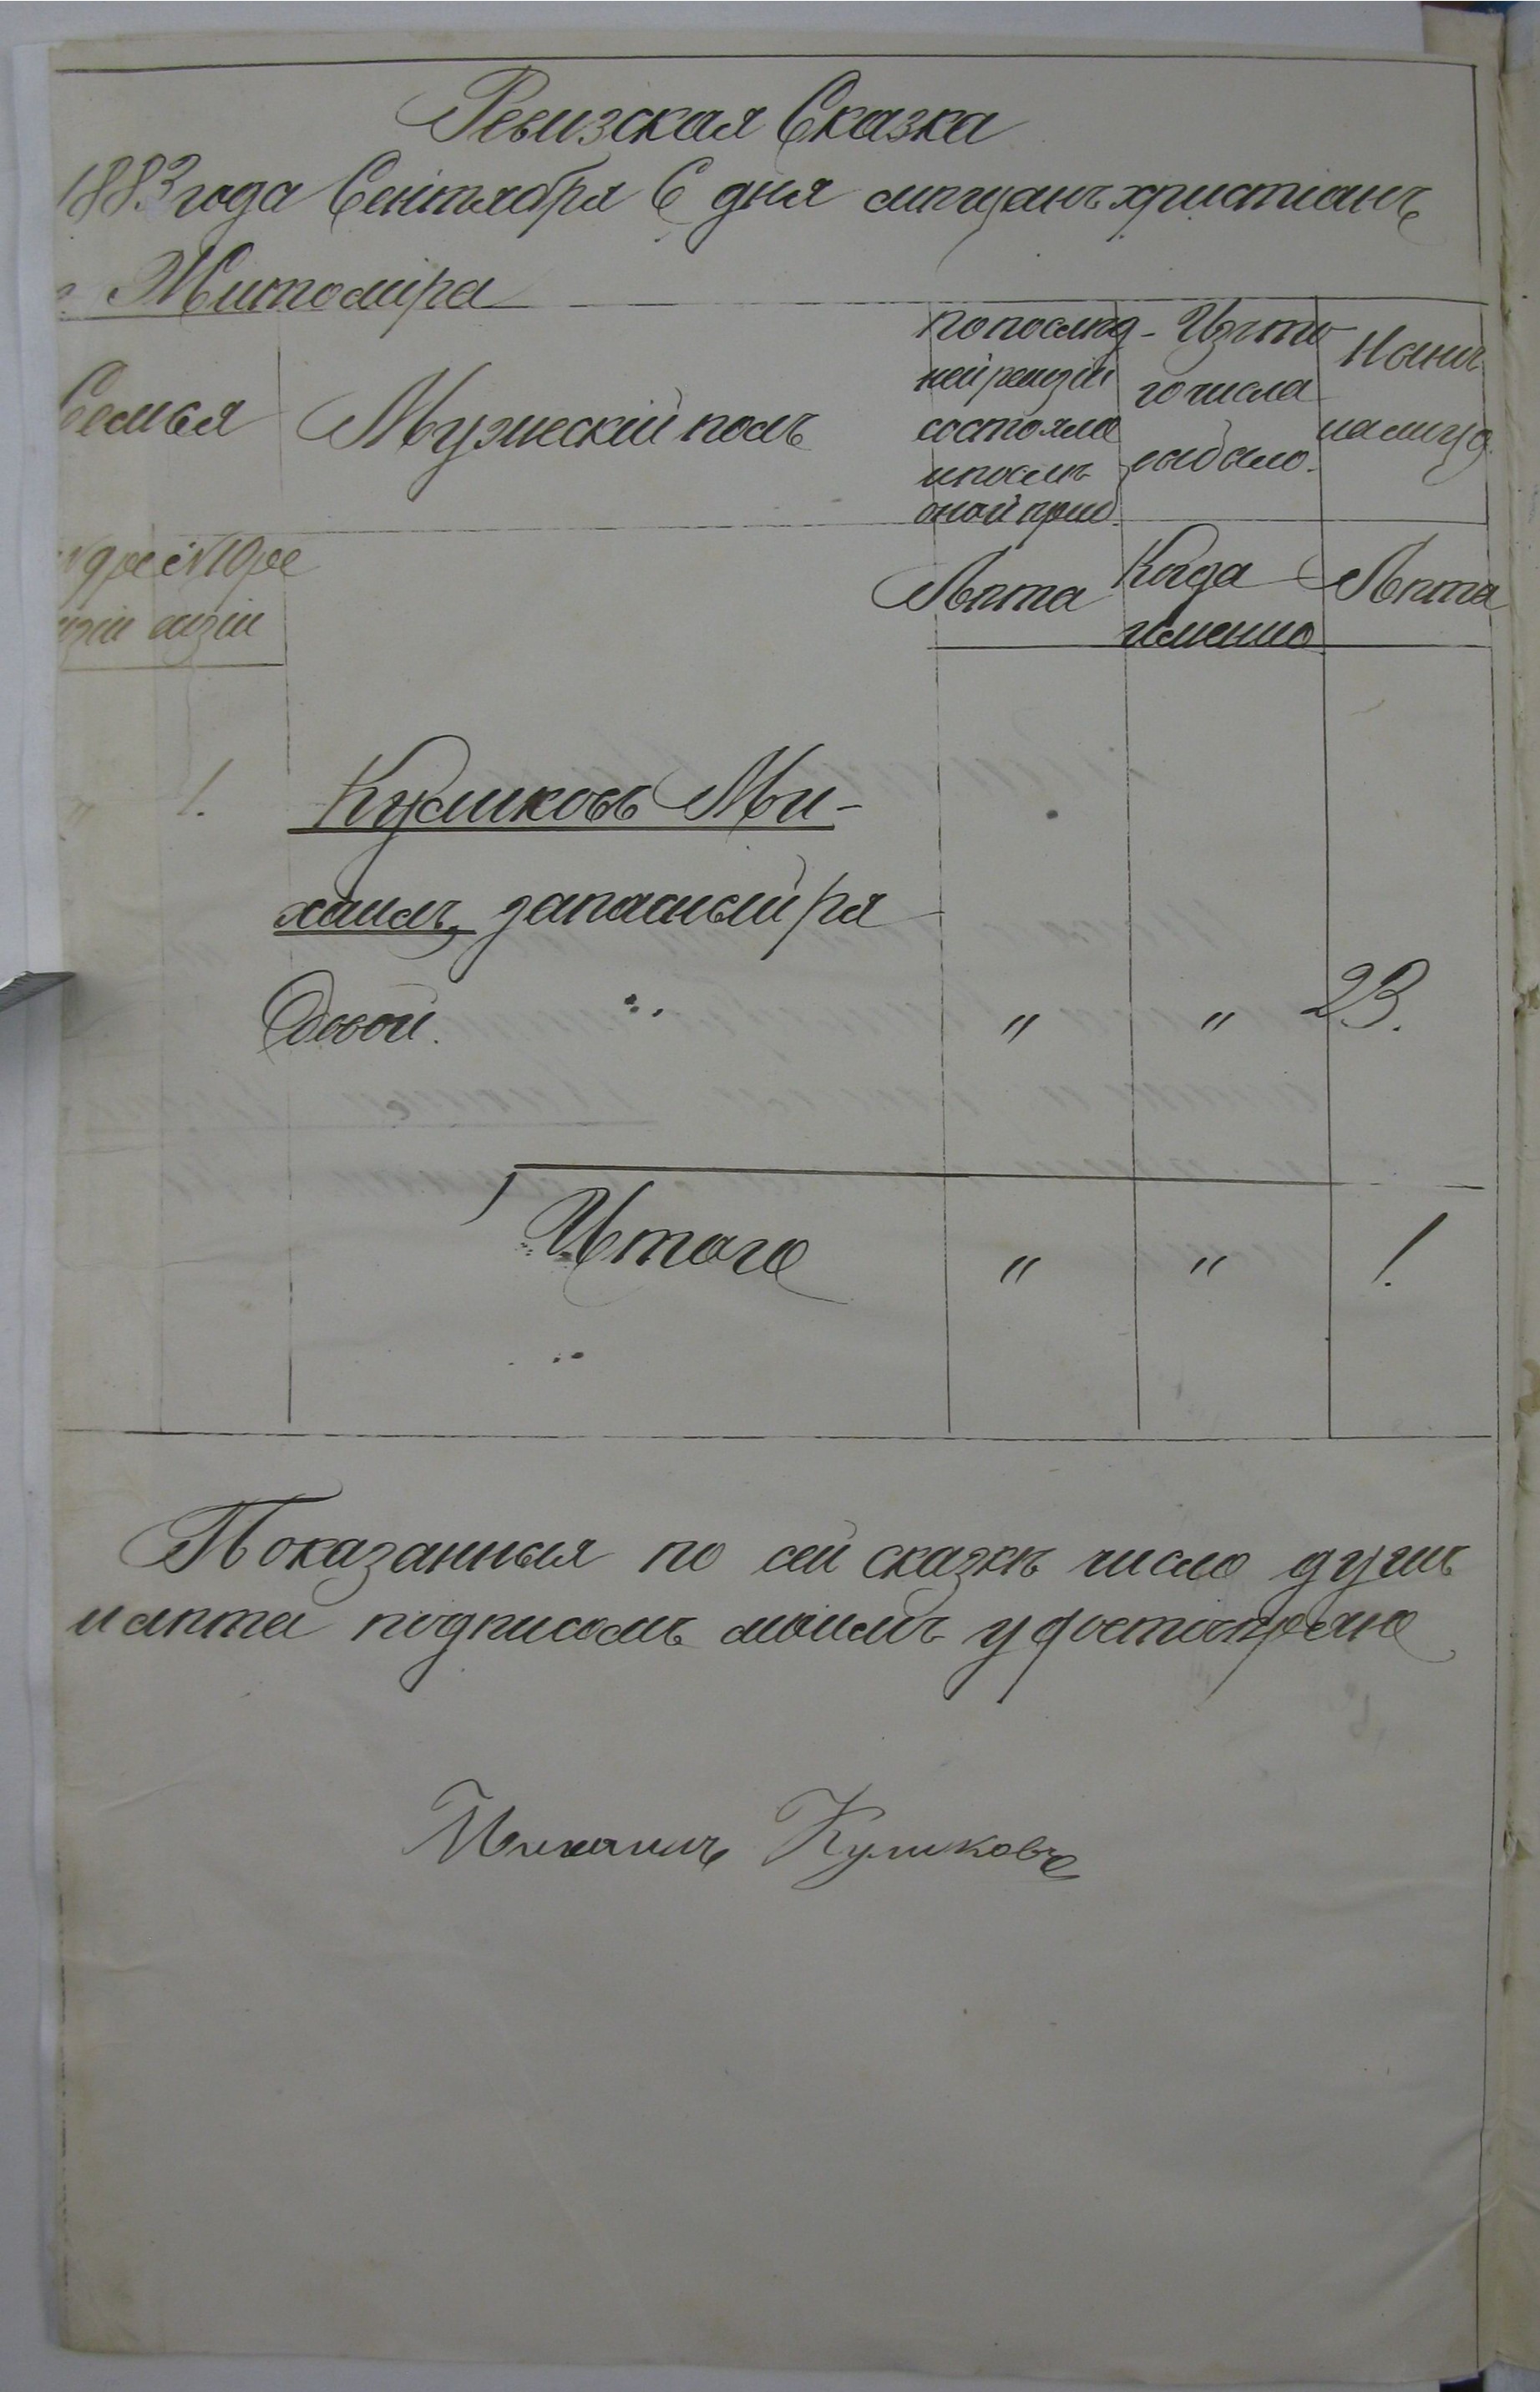 Ревизская Сказка
1883 года Сентября 6 дня мещанъ христіанъ
г. Житоміра
Семья
Мужескій полъ
По послѣд-
ней ревизіи
состояло
и послѣ
оной приб.
Изъ то
го числа
выбыло.
Нынѣ
на лицо.
№ 9 ре
визіи
№ 10 ре
визіи
Лѣта
Когда
именно
Лѣта
" 1. Куликовъ Ми-
хаилъ, запасный ря
довой. " " 23.
Итого " " 1.
Показанныя по сей сказкѣ число душъ
и лѣта подписомъ моимъ удостовѣряю
Михаилъ Куликовъ